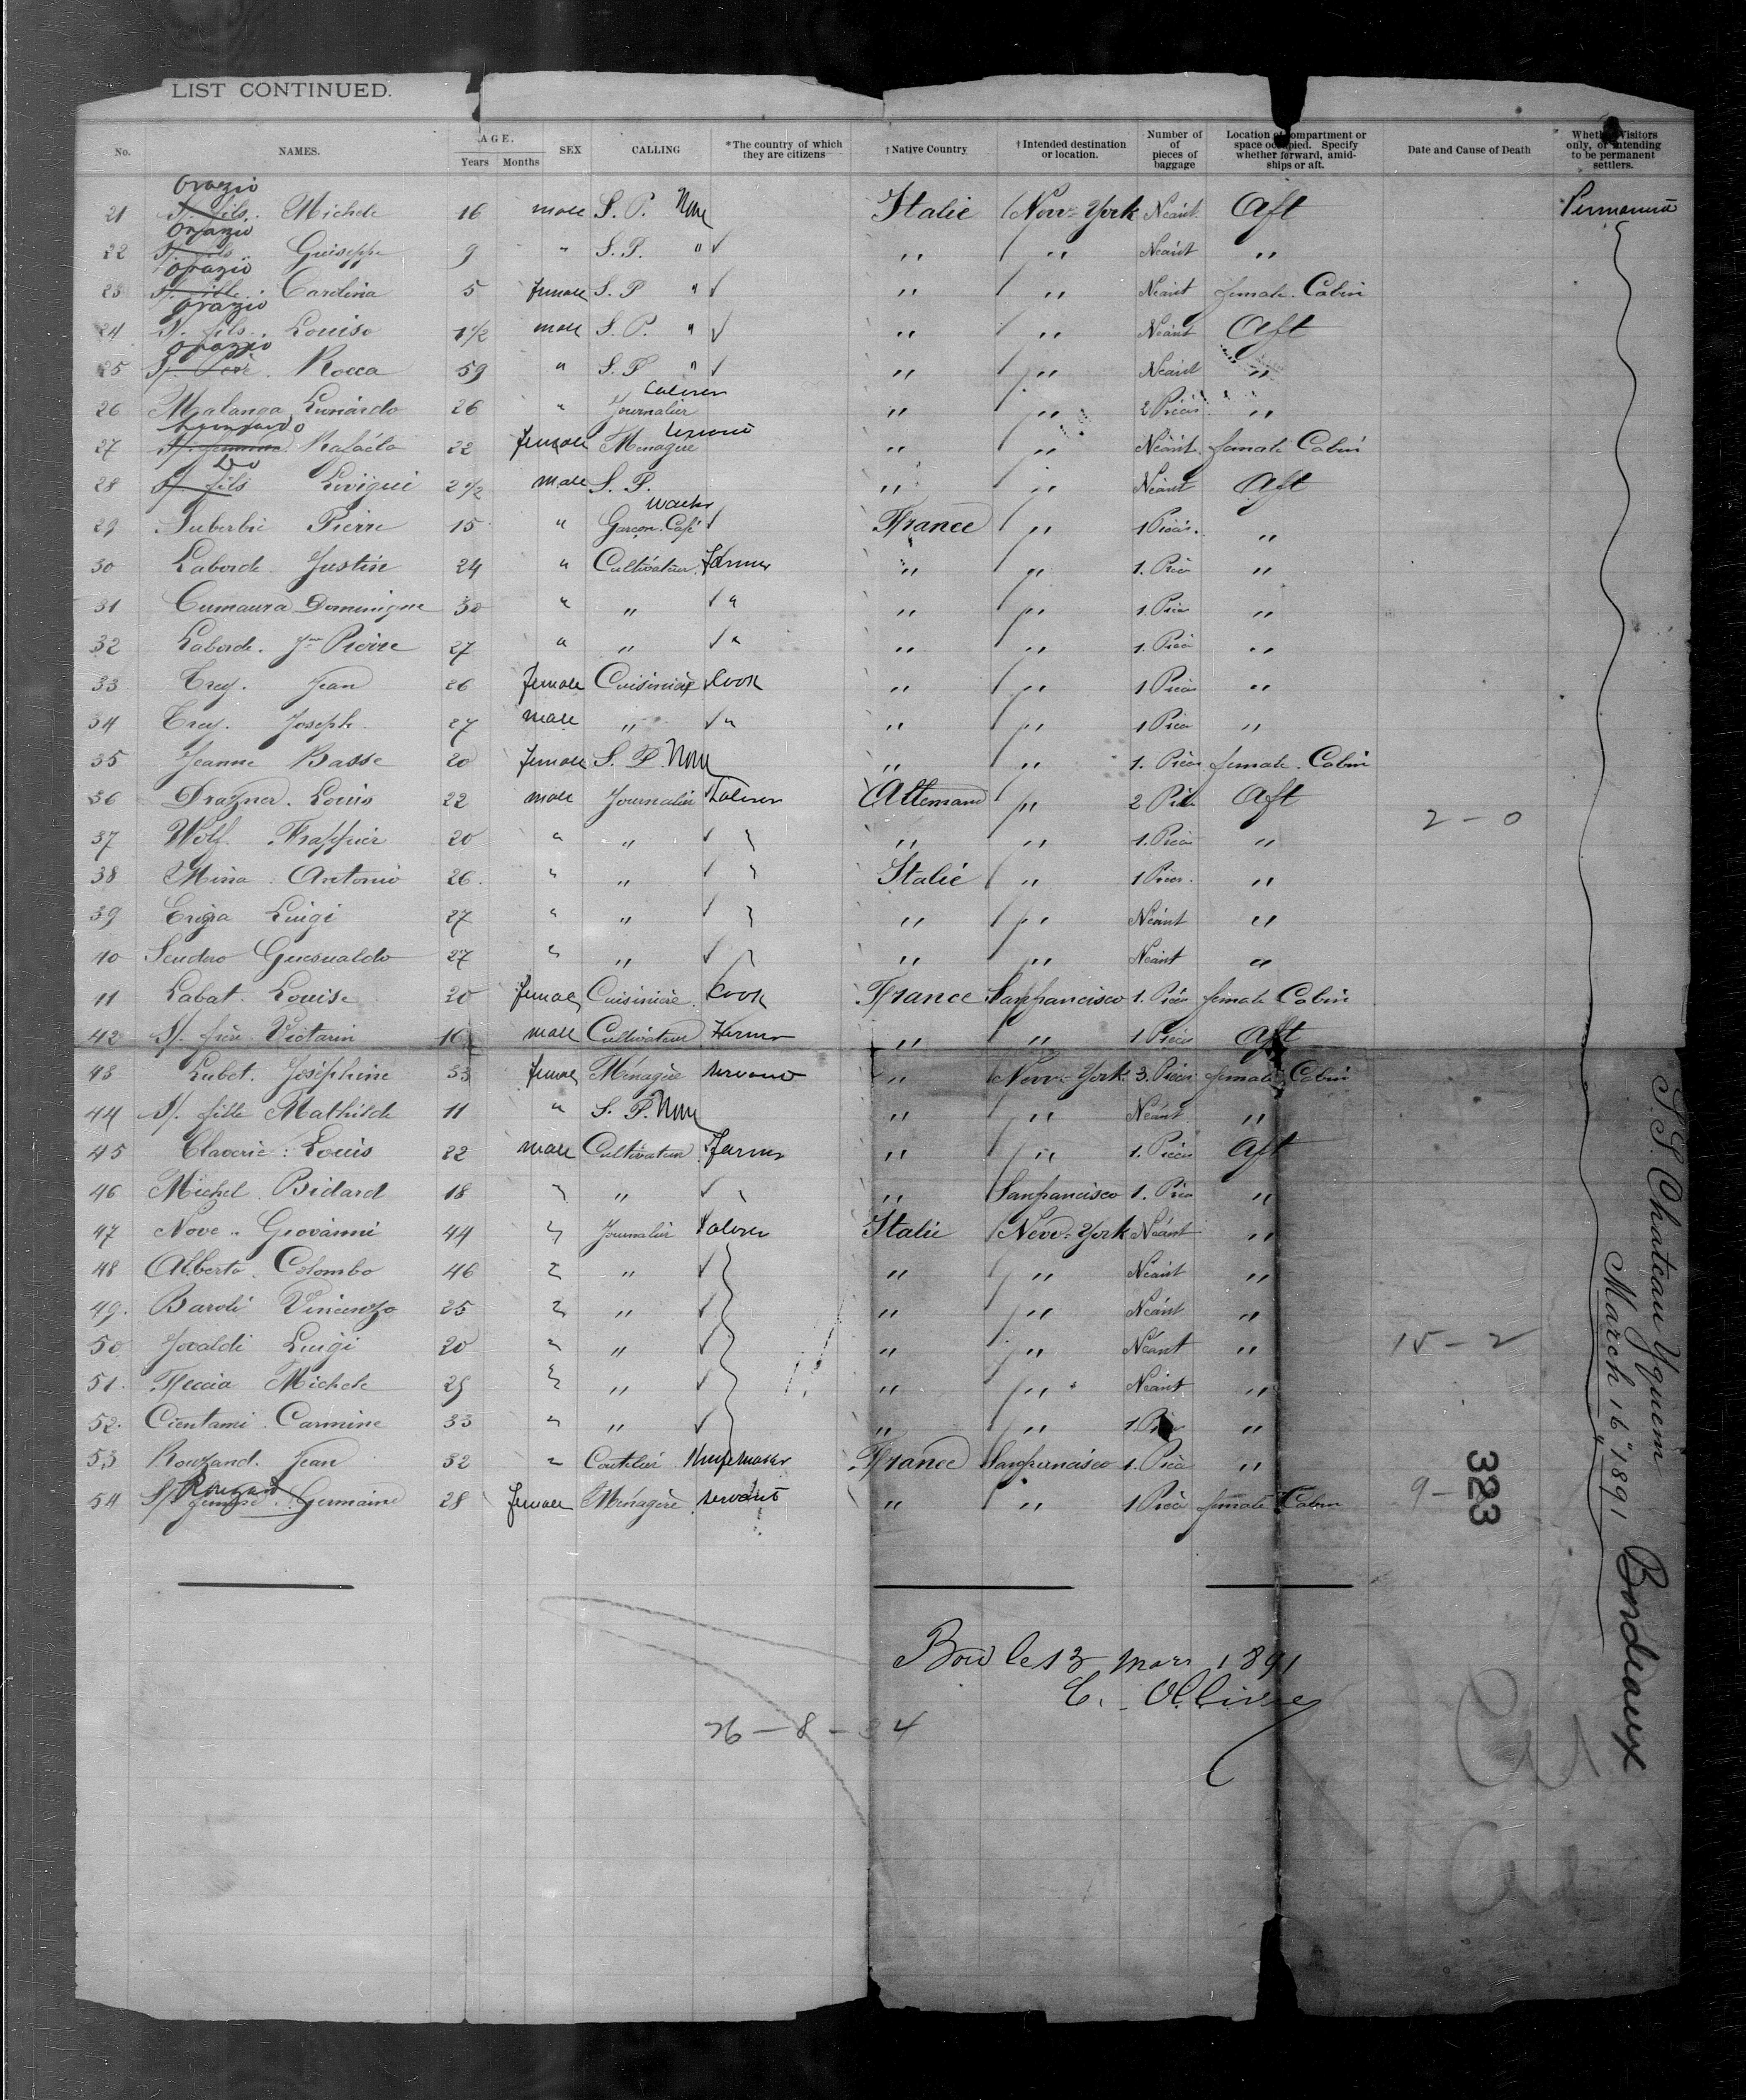 LIST CONTINUED.
No. NAMES. AGE. Years Months SEX CALLING *The country of which they are citizens †Native Country †Intended destination or location. Number of pieces of baggage Location of compartment or space occupied. Specify whether forward, amidships or aft. Date and Cause of Death Whether Visitors only, or intending to be permanent settlers.
Orazio
21 S/. fils. Michele 16 male S. P. None Italie New-York Néant Aft Permanent
Orazio
22 S/. fils Guiseppe 9 " S. P. " " " Néant "
Orazio
23 S/. fille. Carolina 5 female S. P " " " Néant female. Cabin
Orazio
24 S/. fils. Louiso 1 1/2 male S. P. " " " Néant Aft
Orazio
25 S/. Rocca 59 " S. P " " " Néant "
26 Malanga Lunardo 26 " Journalier Laborer " " 2 Pièces "
Lunardo
27 S/. femme. Rafaéla 22 female Ménagère " " Néant female Cabin
Do
28 S/. fils Livigui 2 1/2 male S. P. " " Néant Aft
29 Suberbie Pierre 15 " Garçon. Café France " 1 Pièce. "
30 Laborde Justin 24 " Cultivateur Farmer " " 1. Pièce "
31 Cumaura Dominique 30 " " " " " 1. Pièce "
32 Laborde. Jn Pierre 27 " " " " " 1. Pièce "
33 Trey. Jean 26 female Cuisinière Cook " " 1 Pièce "
34 Trey. Joseph 27 male " " " " 1 Pièce "
35 Jeanne Basse 20 female S. P. None " " 1. Pièce female. Cabin
36 Drazner. Louis 22 male Journalier Laborer Allemand " 2 Pièces Aft
2 - 0
37 Wolf. Frappier 20 " " " " 1. Pièce "
38 Mina. Antonio 26. " " Italie " 1 Pièce. "
39 Luigi 27 " " " " Néant "
40 Scudero Guesualdo 27 " " " " Néant "
41 Labat. Louise 20 female Cuisinière Cook France Sanfrancisco 1. Pièce female Cabin
42 S/. frère Victorin 16 male Cultivateur Farmer " " 1 Pièce Aft
43 Lubet. Joséphine 33 female Ménagère Servant " New-York 3. Pièces female Cabin
44 S/. fille Mathilde 11 " S. P. None " " Néant "
45 Claverie: Louis 22 male Cultivateur Farmer " " 1. Pièce Aft
46 Michel. Bidard 18 " " " Sanfrancisco 1. Pièce "
47 Nove.. Giovanni 44 " Journalier Laborer Italie New-York Néant "
48 Alberto. Colombo 46 " " " " Néant "
49. Baroli Vincenzo 25 " " " " Néant "
50 Jovaldi Luigi 20 " " " " Néant "
15 - 2
51. Michele 25 " " " " Néant "
52. Cientami. Carmine 33 " " " " 1 Pièce "
53 Rouzand. Jean 32 " Coutelier France Sanfrancisco 1. Pièce "
Rouzand
54 S/ femme. Germaine 28 female Ménagère Servant " " 1 Pièce female Cabin
9 -
323
S.S. Chateau Yquem
March 16" 1891
Bordeaux
le 13 mars 1891
76 - 8 - 34